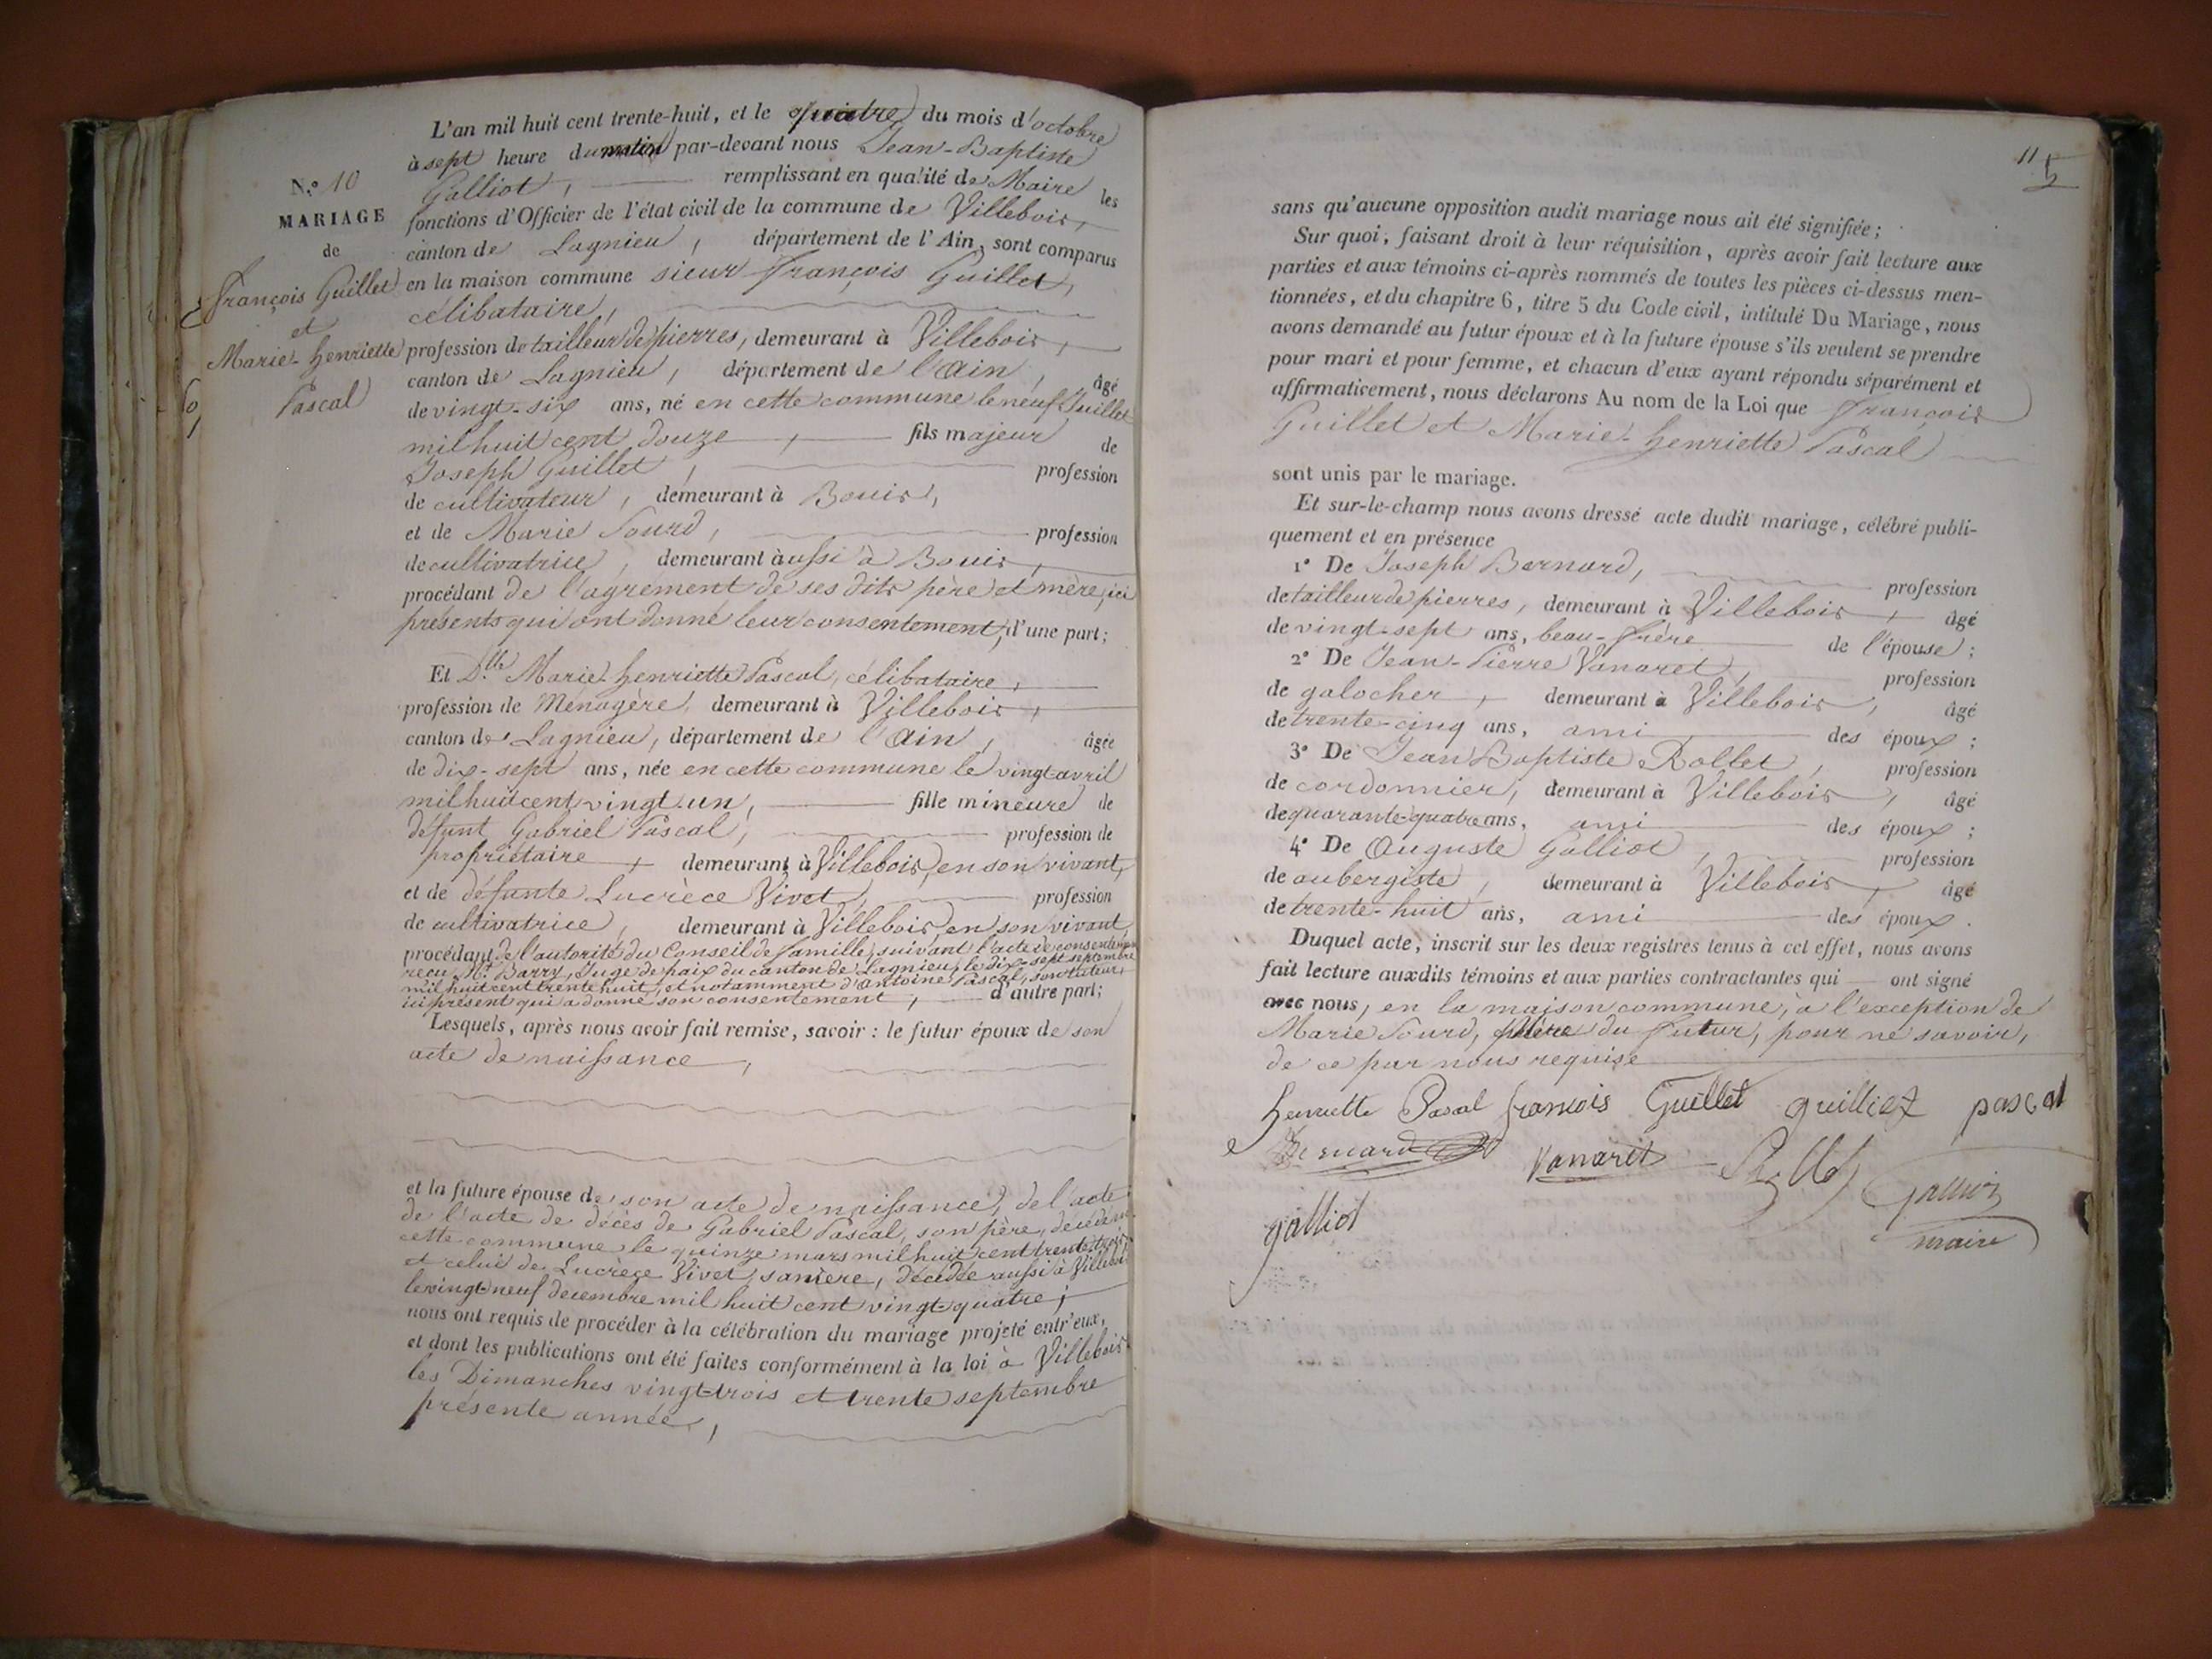 N.º 10
MARIAGE
de
François Guillet
et
Marie-henriette
Pascal
L'an mil huit cent trente-huit, et le quatre du mois d'octobre
à sept heure du matin par-devant nous Jean-Baptiste
Galliot, remplissant en qualité de Maire les
fonctions d'Officier de l'état civil de la commune de Villebois,
canton de Lagnieu, département de l'Ain, sont comparus
en la maison commune sieur François Guillet,
célibataire,
profession de tailleur de pierres, demeurant à Villebois,
canton de Lagnieu, département de l'Ain, âgé
de vingt-six ans, né en cette commune le neuf Juillet
mil huit cent douze, fils majeur de
Joseph Guillet, profession
de cultivateur, demeurant à Bouis,
et de Marie Sourd, profession
de cultivatrice, demeurant aussi à Bouis,
procédant de l'agrément de ses dits père et mère, ici
présents qui ont donné leur consentement, d'une part;
Et D.lle Marie-henriette Pascal, célibataire,
profession de Ménagère, demeurant à Villebois,
canton de Lagnieu, département de l'Ain, âgée
de dix-sept ans, née en cette commune le vingt avril
mil huit cent vingt-un, fille mineure de
défunt Gabriel Pascal, profession de
propriétaire, demeurant à Villebois, en son vivant,
et de défunte Lucrèce Vivet, profession
de cultivatrice, demeurant à Villebois, en son vivant,
procédant de l'autorité du Conseil de famille, suivant l'acte de consentement
reçu Mr. Barry, Juge de paix du canton de Lagnieu, le dix-sept septembre
mil huit cent trente huit, et notamment d'Antoine Pascal, son tuteur,
ici présent qui a donné son consentement, d'autre part;
Lesquels, après nous avoir fait remise, savoir: le futur époux de son
acte de naissance,
et la future épouse de son acte de naissance, de l'acte
de l'acte de décès de Gabriel Pascal, son père, décédé en
cette commune le quinze mars mil huit cent trente-trois
et celui de Lucrèce Vivet, sa mère, décédée aussi à Villebois
le vingt-neuf décembre mil huit cent vingt-quatre;
nous ont requis de procéder à la célébration du mariage projeté entr'eux,
et dont les publications ont été faites conformément à la loi à Villebois
les Dimanches vingt-trois et trente septembre
présente année,
11
sans qu'aucune opposition audit mariage nous ait été signifiée;
Sur quoi, faisant droit à leur réquisition, après avoir fait lecture aux
parties et aux témoins ci-après nommés de toutes les pièces ci-dessus men-
tionnées, et du chapitre 6, titre 5 du Code civil, intitulé Du Mariage, nous
avons demandé au futur époux et à la future épouse s'ils veulent se prendre
pour mari et pour femme, et chacun d'eux ayant répondu séparément et
affirmativement, nous déclarons Au nom de la Loi que François
Guillet et Marie-henriette Pascal
sont unis par le mariage.
Et sur-le-champ nous avons dressé acte dudit mariage, célébré publi-
quement et en présence
1º De Joseph Bernard, profession
de tailleur de pierres, demeurant à Villebois, âgé
de vingt-sept ans, beau-frère de l'épouse;
2º De Jean-Pierre Vanaret, profession
de galocher, demeurant à Villebois, âgé
de trente-cinq ans, ami des époux;
3º De Jean Baptiste Rollet, profession
de cordonnier, demeurant à Villebois, âgé
de quarante-quatre ans, ami des époux;
4º De Auguste Galliot, profession
de aubergiste, demeurant à Villebois, âgé
de trente-huit ans, ami des époux.
Duquel acte, inscrit sur les deux registres tenus à cet effet, nous avons
fait lecture auxdits témoins et aux parties contractantes qui ont signé
avec nous, en la maison commune, à l'exception de
Marie Sourd, Mère du Futur, pour ne savoir,
de ce par nous requise
henriette Pascal françois Guillet guilliet pascal
Bernard Vanaret Rollet Galliot
maire
galliot